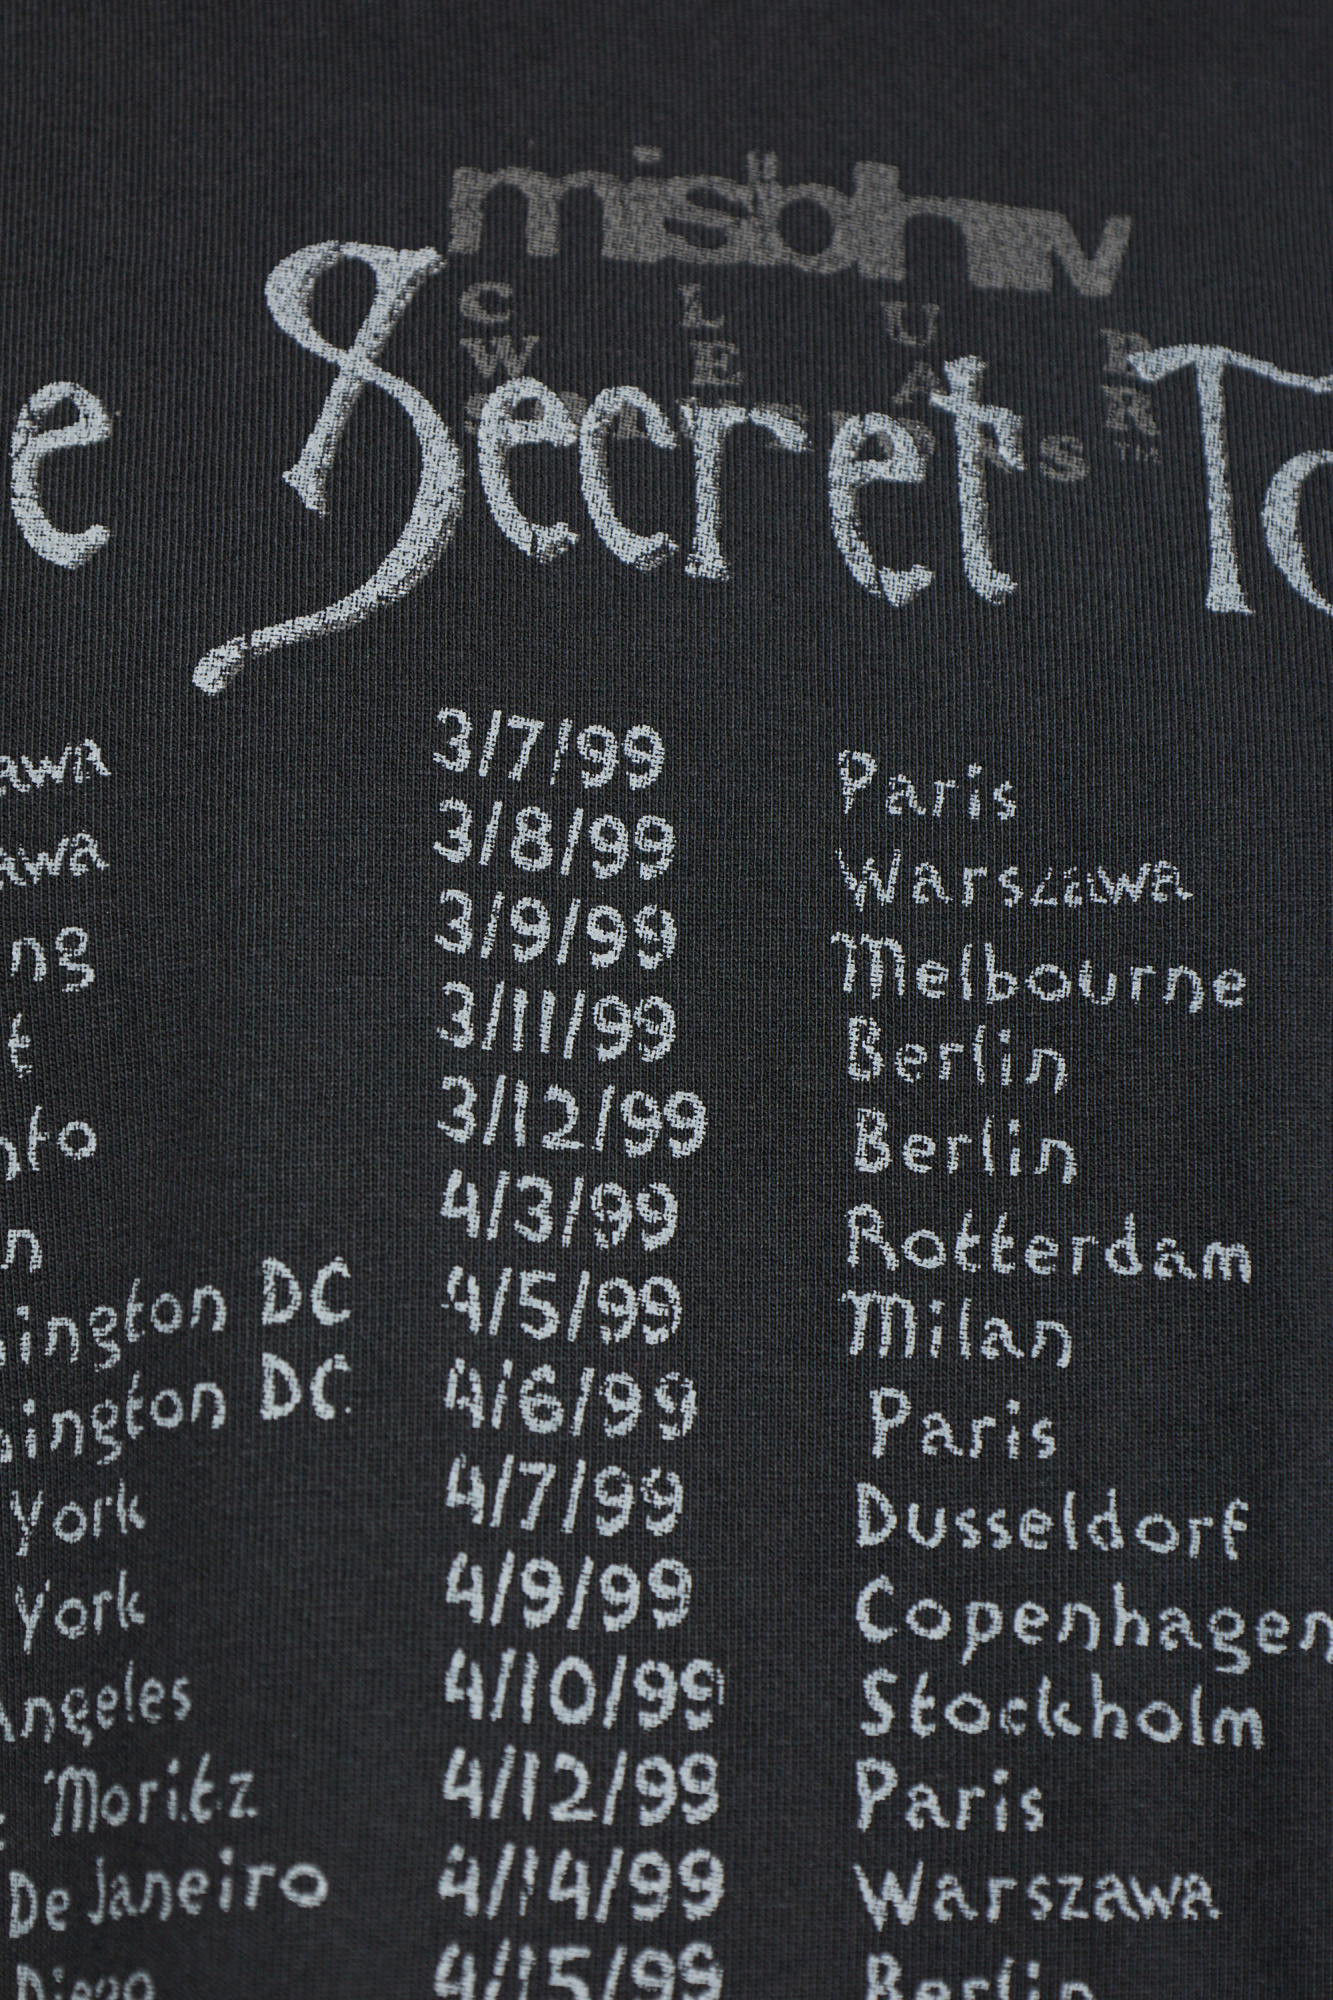 misbhv
C L U B
W E A R
e Secret To
awa 3/7/99 Paris
awa 3/8/99 Warszawa
ng 3/9/99 Melbourne
t 3/11/99 Berlin
nto 3/12/99 Berlin
n 4/3/99 Rotterdam
hington DC 4/5/99 Milan
hington DC 4/6/99 Paris
York 4/7/99 Dusseldorf
York 4/9/99 Copenhagen
Angeles 4/10/99 Stockholm
. Moritz 4/12/99 Paris
De Janeiro 4/14/99 Warszawa
Diego 4/15/99 Berlin